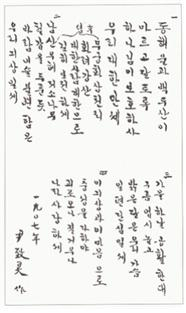 一
동해물과 백두산이
마르고 달토록
하나님이 보호하사
우리 대한 만세
무궁화 삼천리
화려강산
대한사람 대한으로
길히 보전하세
남산우헤 저 소나무
철갑을 두른듯
바람이슬 불변함은
우리 긔상일세
三
가을하날 공활한데
구름업시 놉고
밝은달은 우리가슴
일편단심일세
이긔상과 이마음으로
괴로오나 질거우나
나라사랑하세
一九〇七年
尹致昊 作